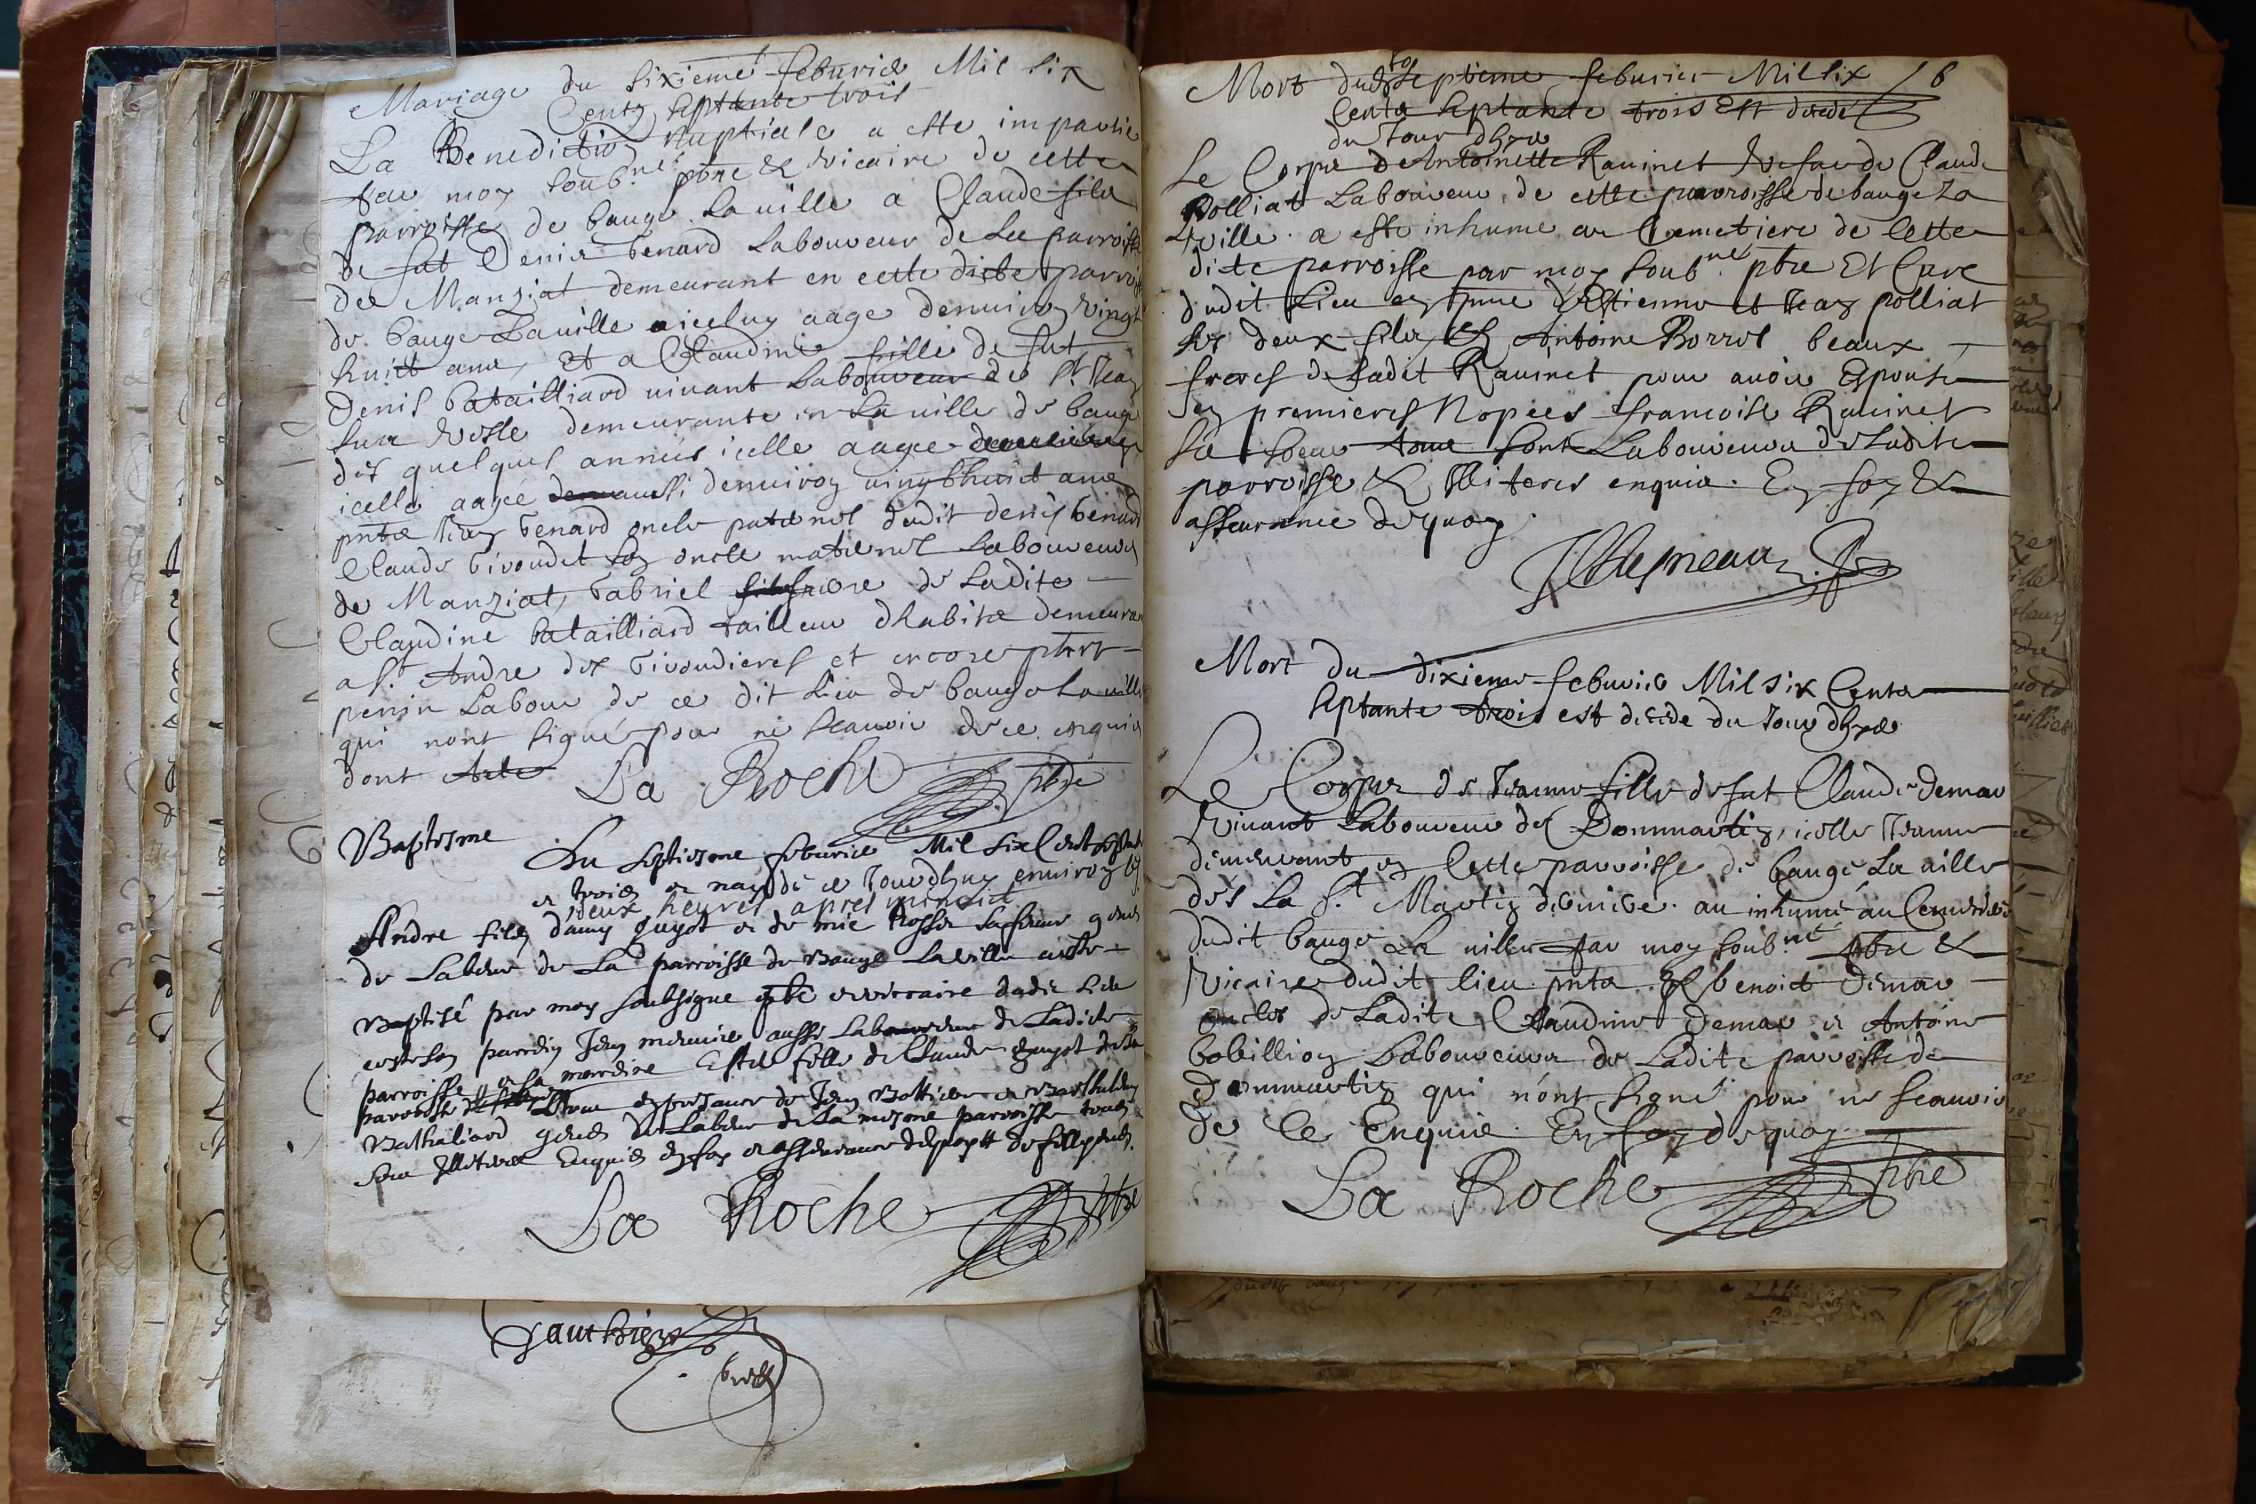 Mariage du sixieme feburier Mil six
Centz septante trois
La Benediction nuptiale a este impartie
par moy soub.né pbre & vicaire de cette
parroisse de bauge la ville a Claude filz
de fut Denis benard Laboureur de La parroisse
de Manziat demeurant en cette dicte parroisse
de bauge La ville iceluy aage denviron vingt
huict ans, Et a Claudine fille de fut
Denis batailliard vivant Laboureur de St Jean
sur Vesle demeurante en La ville de bauge
des quelques annees icelle aagee
icelle aagee denviron vingthuict ans
pnts Jean benard oncle paternel dudit denis benard
Claude Givoudet son oncle maternel Laboureurs
de Manziat, Gabriel frere de Ladite
Claudine batailliard tailleur dhabits demeurant
a St Andre des Givoudieres et encore
perrin Labour de ce dit lieu de bauge La ville
qui nont signé pour ne scavoir de ce enquis
dont Acte La Roche pbre
Baptesme
Du septiesme feburier Mil six Cent septante
et trois et nay de ce Jourdhuy environ les
deux heures apres minuict
Andre filz d'amy guyot et de mie Rosset sa femme gens
de Labeur de La parroisse de Bauge La ville a este
Baptisé par moy soubsigne pbre et viccaire dudit Lieu
et son parrein Jean mernier aussi Laboureur de Ladicte
parroisse et sa mareine Estul fille de Claude guyot de la
parroisse en presence de Jean Bottier et Barthelemy
Bathaliard gens de Labeur de La mesme parroisse tous
sou Illiteres Enquis en foy et asseurance
La Roche pbre
Gauthier
Mort du septieme feburier Mil six 16
Centz septante trois Est decede
du Jour dhyer
Le Corps de Antoinette Ravinet vefve de Claude
Polliat Laboureur de cette parroisse de bauge La
Ville a este inhume au Cemetiere de Cette
dicte parroisse par moy soub.né pbre Et Cure
dudit Lieu en pnce d'Estienne et Jean polliat
ses deux filz & Antoine Borrel beaux
freres de Ladit Ravinet pour avoir Espousé
en premieres Nopces francoise Ravinet
sa soeur tous sont Laboureurs de Ladite
parroisse & Illiteres enquis. En foy &
asseurance de quoy.
Mort du dixieme feburier Mil six Centz
septante trois est decede du Jour dhyer
Le Corps de Jeanne fille de fut Claude demar
Vivant Laboureur de Dommartin, icelle Jeanne
demeurant en Cette parroisse de baugé La ville
des La St Martin derniere. au inhumé au Cemetiere
dudit bauge La ville par moy soub.né pbre &
Vicaire dudit lieu pnts & benoict demar
oncles de Ladite Claudine demar et Antoine
bobillion Laboureurs de Ladite parroisse de
Dommartin qui n'ont signé pour ne scavoir
de Ce Enquis. En foy de quoy.
La Roche pbre